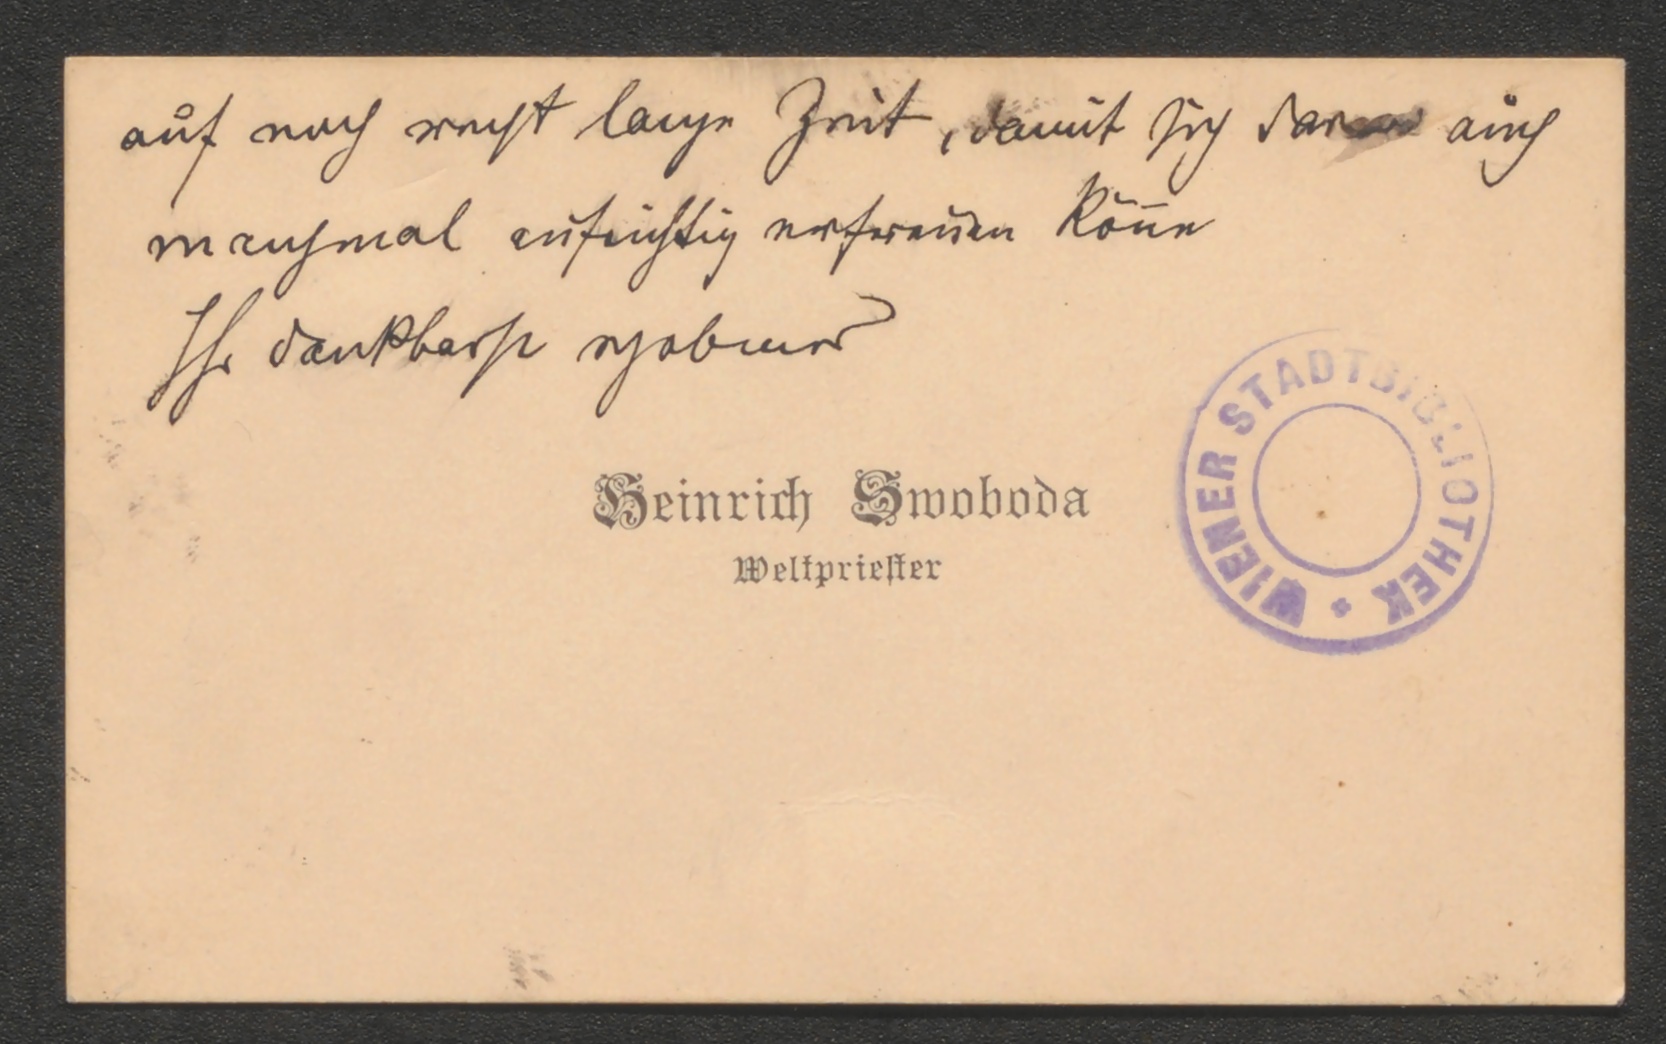 auf noch recht lange Zeit, damit sich daran auch
manchmal aufrichtig erfreuen kön̄e
Ihr dankbarst ergebener
Heinrich Swoboda
Weltpriester
WIENER STADTBIBLIOTHEK *